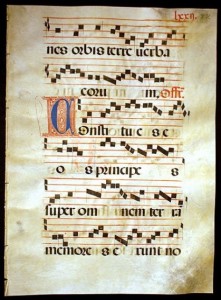 lxxij.
nes orbis terre verba
corum m. Offe
Onsti tu e s e
o s principe s
super om nem ter ra
memores e runt no